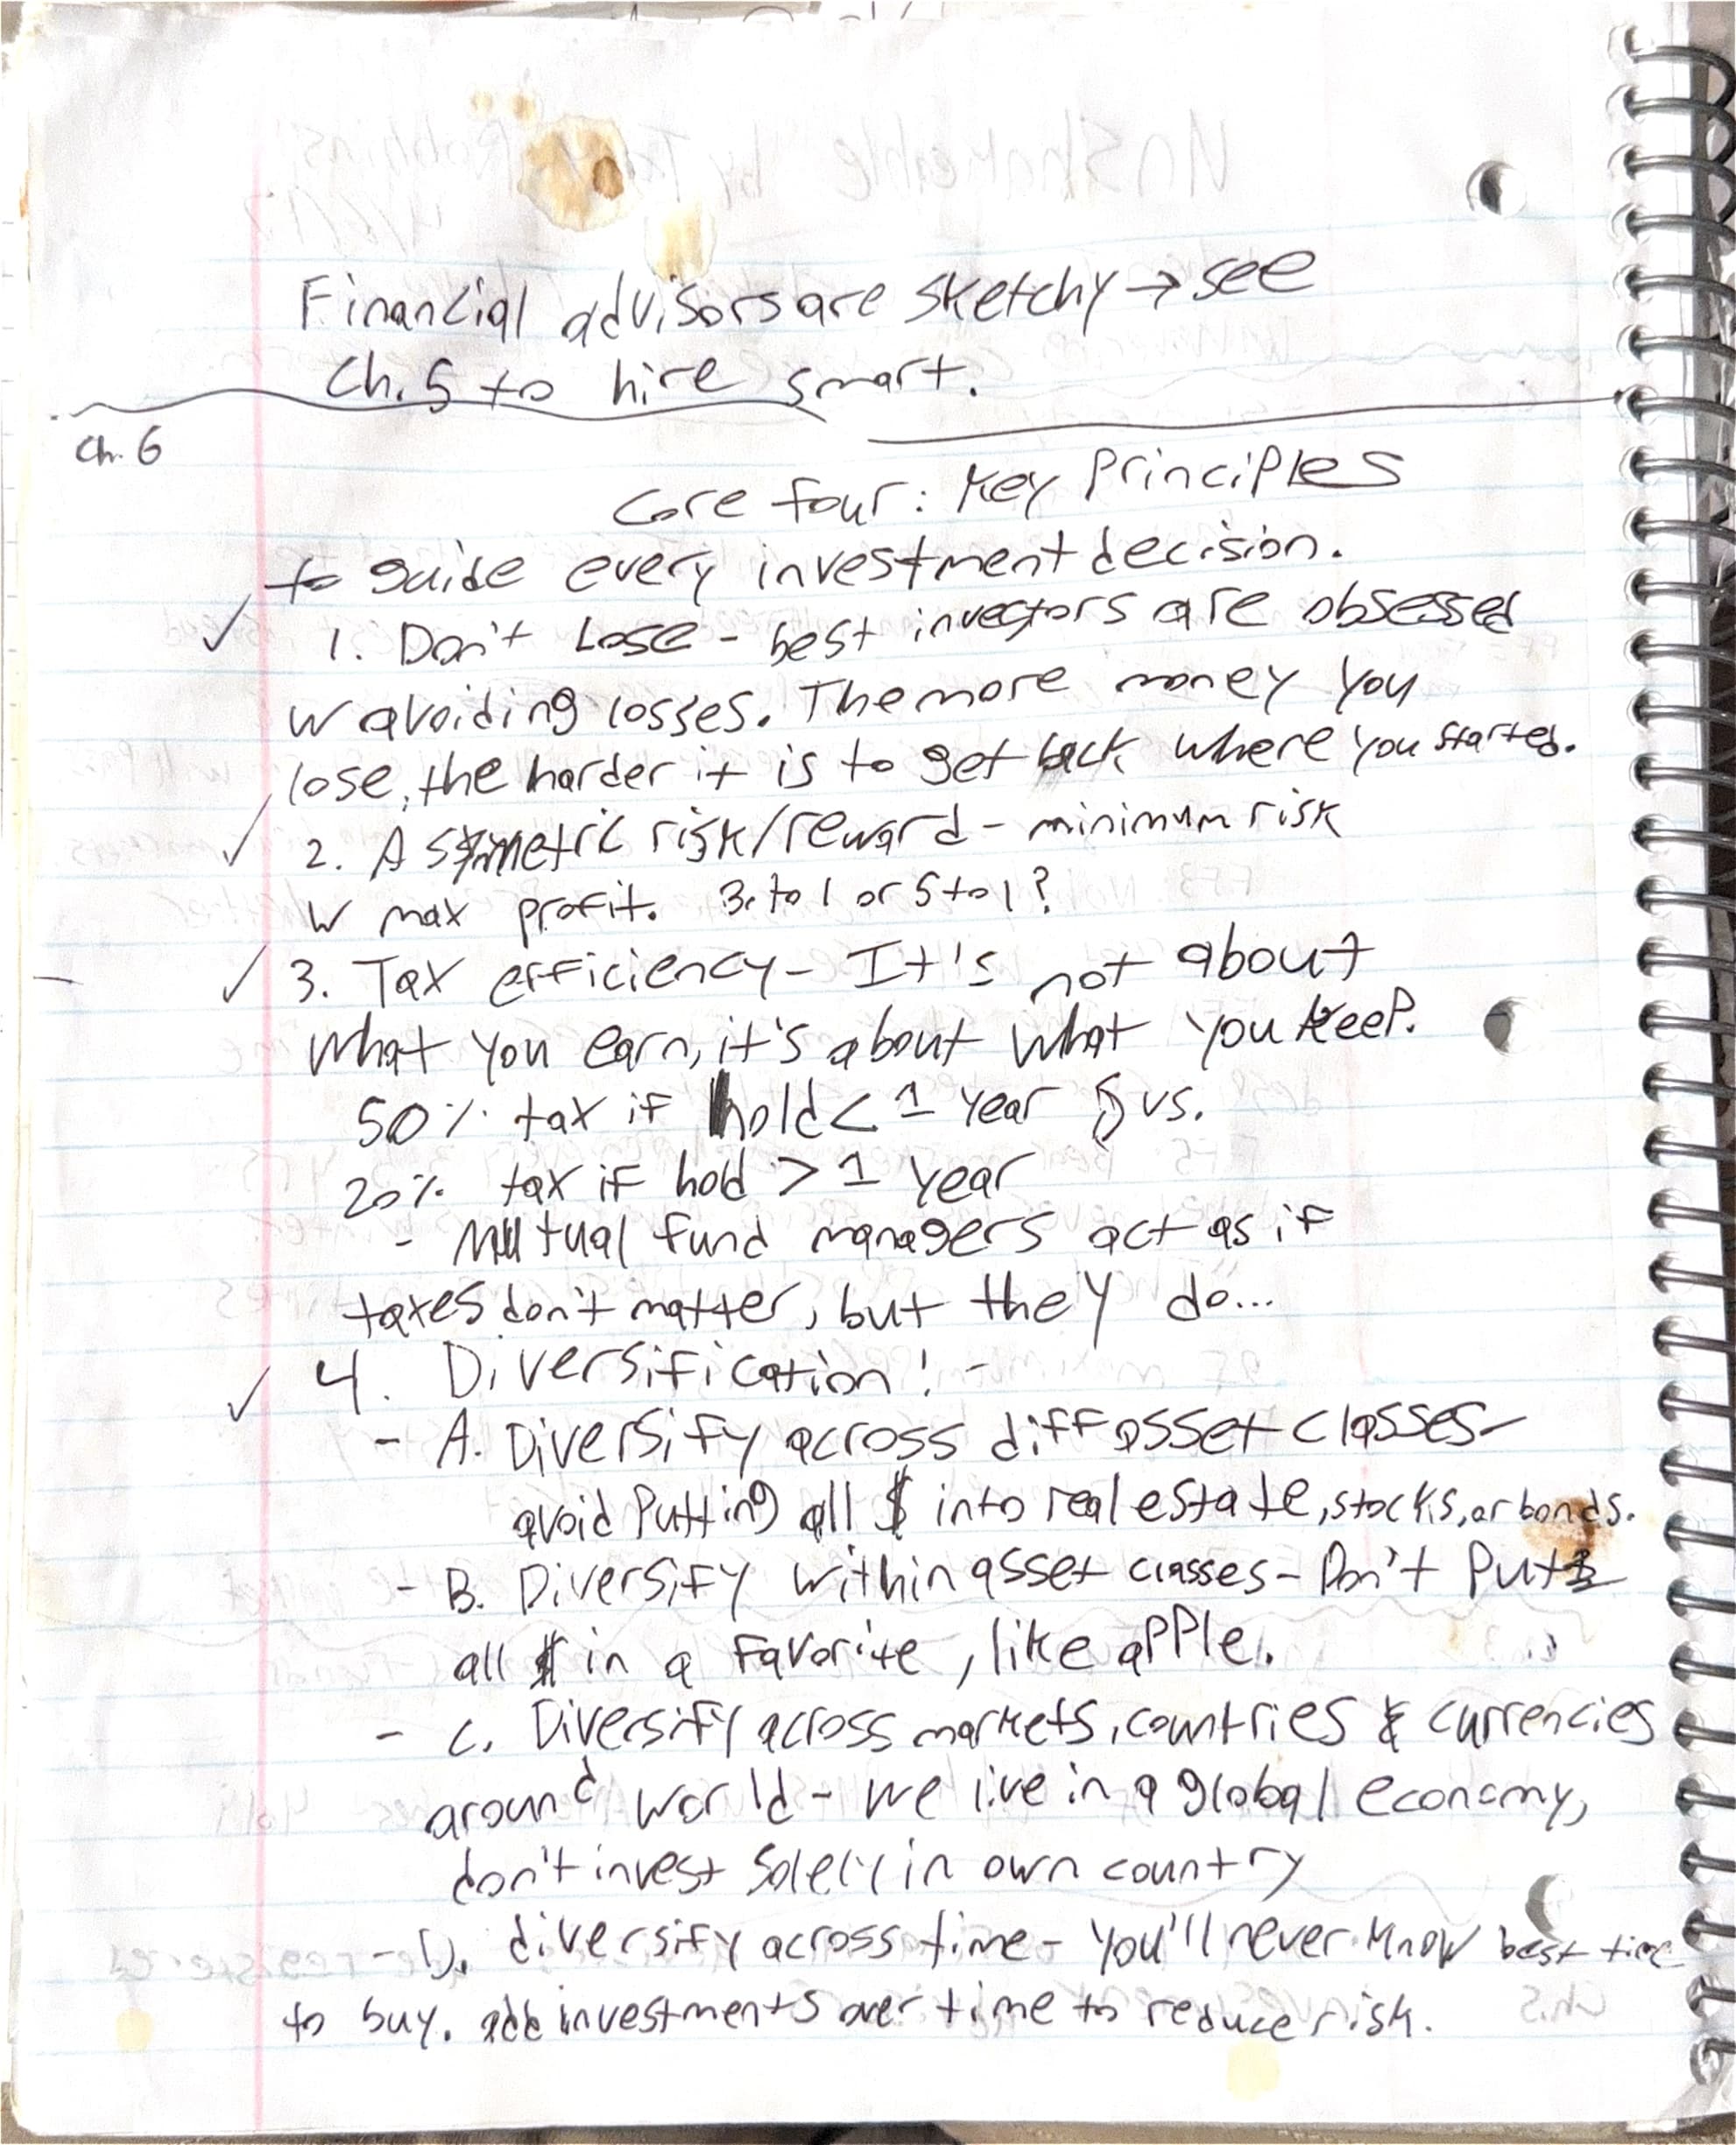 Financial advisors are sketchy → see
Ch. 5 to hire smart.
Ch. 6
Core four: Key Principles
to guide every investment decision.
✓ 1. Don't Lose - best investors are obsessed
w avoiding losses. The more money you
lose, the harder it is to get back where you started.
✓ 2. Asymmetric risk/reward - minimum risk
w max profit. 3 to 1 or 5 to 1?
✓ 3. Tax efficiency - It's not about
what you earn, it's about what you keep.
50% tax if hold < 1 year vs.
20% tax if hold > 1 year
- Mutual fund managers act as if
taxes don't matter, but they do...
✓ 4. Diversification! -
- A. Diversify across diff asset classes -
avoid putting all $ into real estate, stocks, or bonds.
- B. Diversify within asset classes - Don't put
all $ in a favorite, like apple.
- C. Diversify across markets, countries & currencies
around world - we live in a global economy,
don't invest solely in own country
- D. diversify across time - You'll never know best time
to buy. add investments over time to reduce risk.